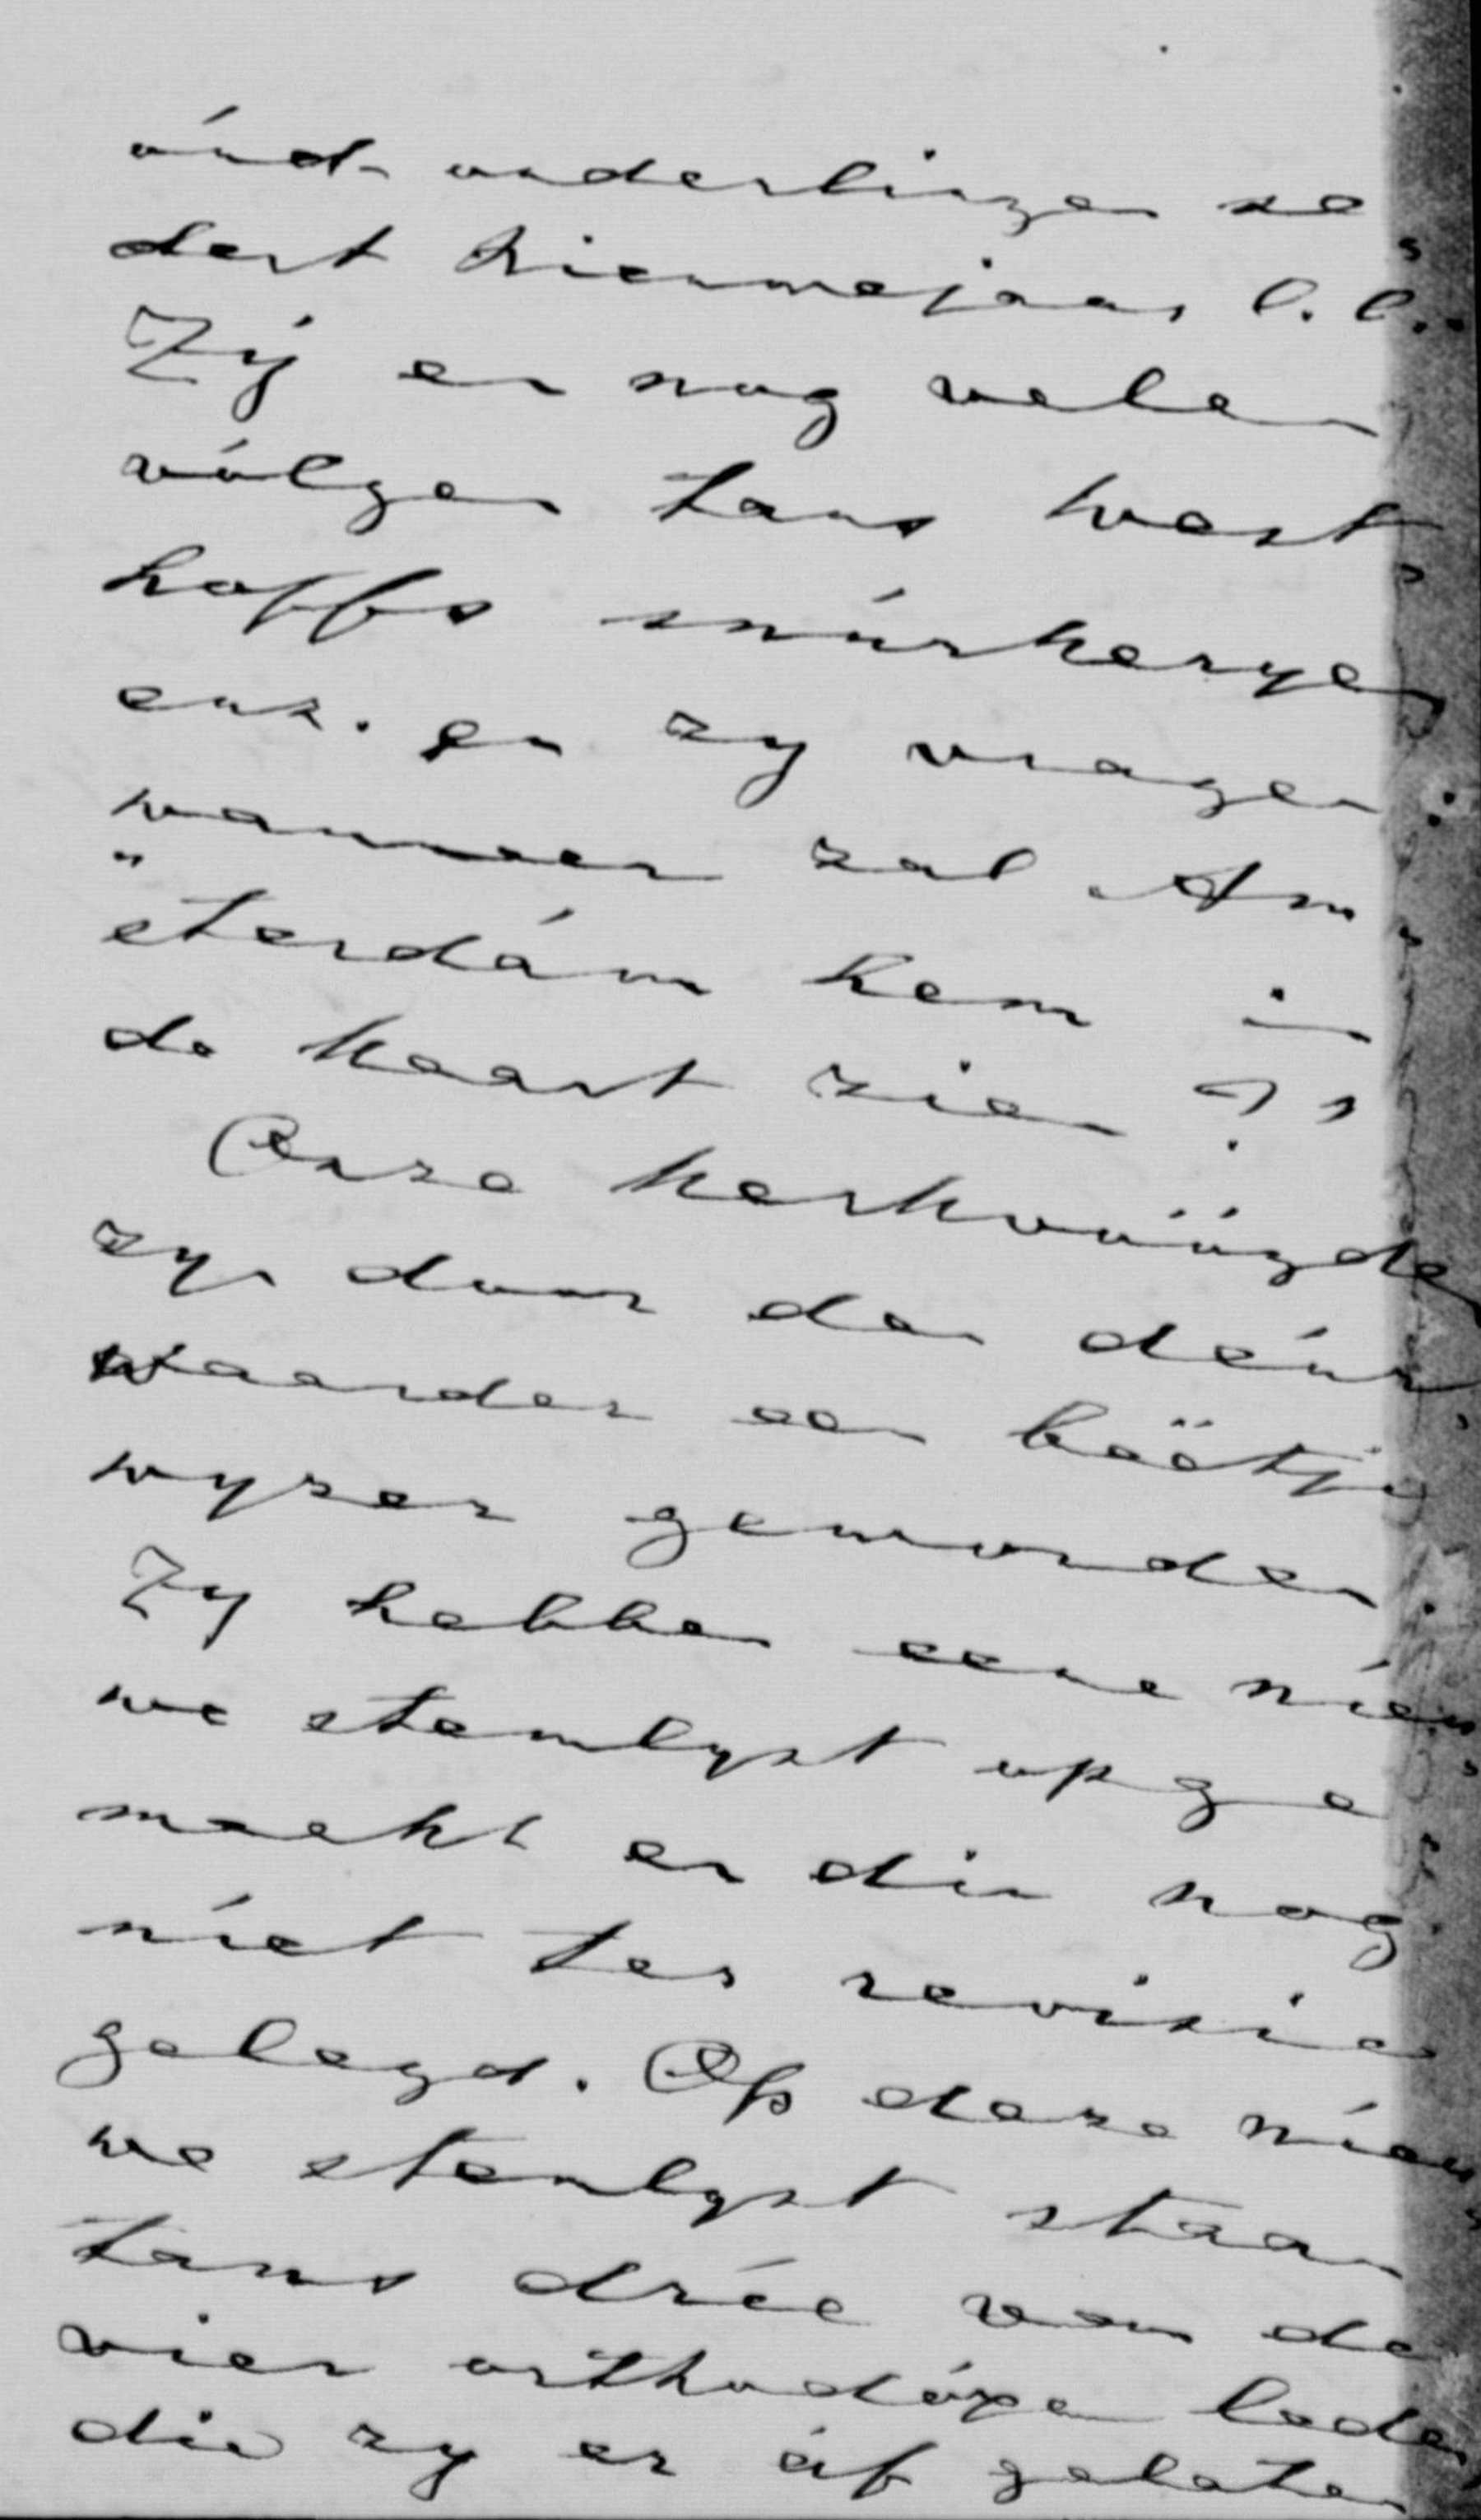 óud-ouderlingen se„
dert Nieuwejaar l.l..
Zij en nog velen
vólgen tans West„
hoffs snúrkeryen
enz. en zy vragen:
„wanneer zal Am„
sterdám hem in
de kaart zien?”
Onze kerkvoögden
zyn door den déur„
waarder een beëtje
wyzer geworden.
Zy hebben eene niéu„
we stemlyst opge„
maakt en die nog
niét ter revisie
gelegd. Op deze niéu„
we stemlyst staan
tans driée van de
vier orthodóxe leden
die zy er áf gelaten